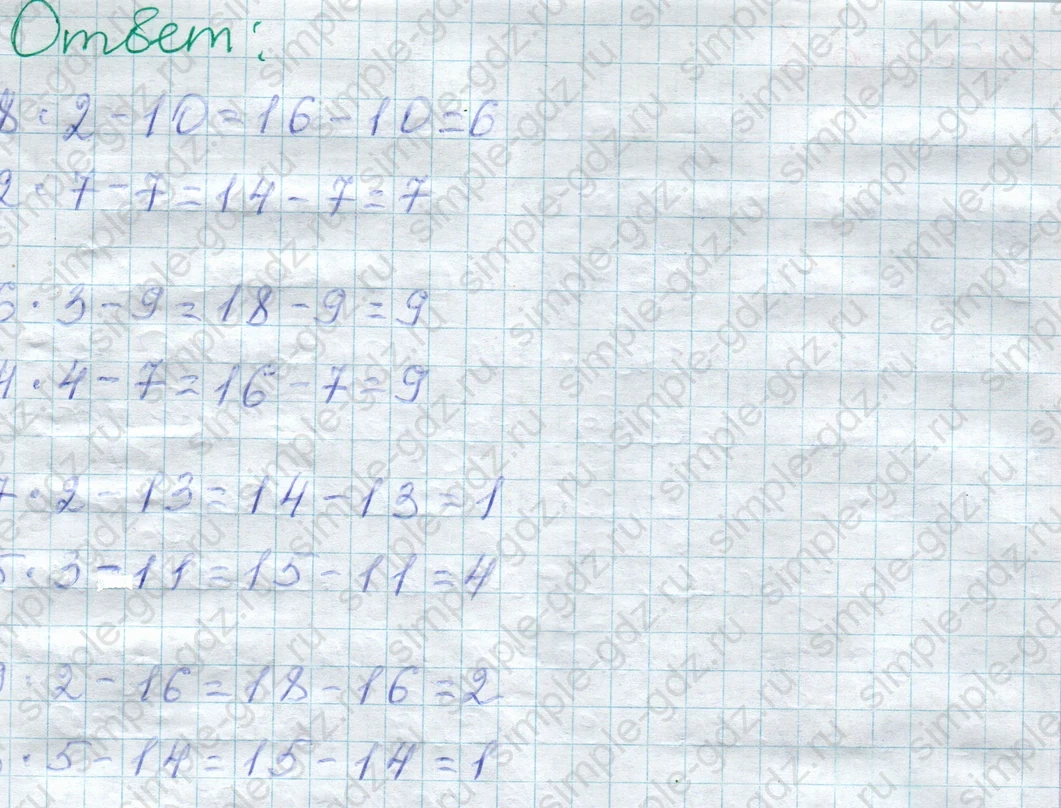 Ответ:
8·2-10=16-10=6
2·7-7=14-7=7
6·3-9=18-9=9
4·4-7=16-7=9
7·2-13=14-13=1
5·3-11=15-11=4
9·2-16=18-16=2
·5-14=15-14=1
simple-gdz.ru